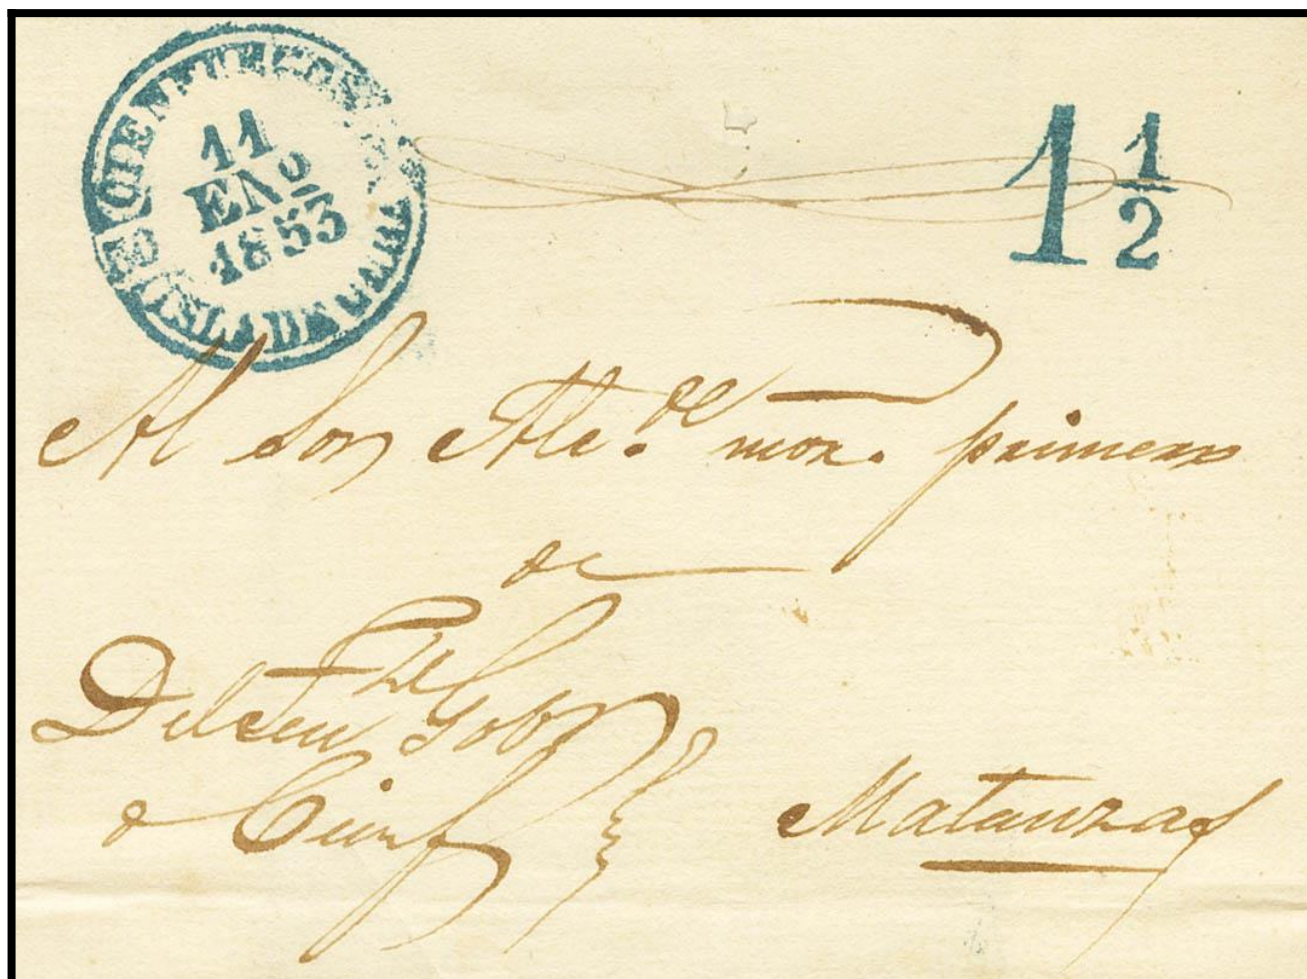 CIENFUEGOS
11
ENº
1853
ISLA DE CUBA
1 1/2
Al Sor Alc.de mor. primero
de
Del Ten.te Gobr
de Cienf
Matanzas